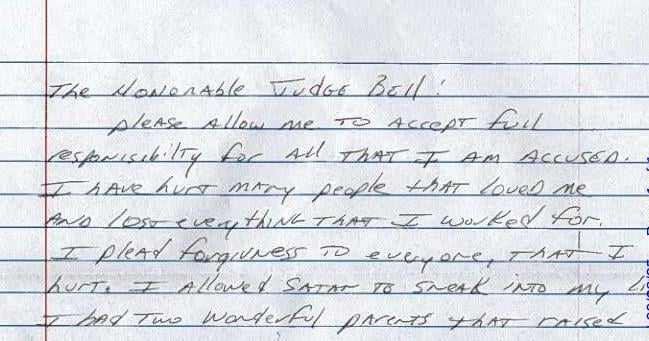 The Honorable Judge Bell:
please Allow me TO Accept full
responisibilty for All THAT I Am Accused.
I HAve hurt mAny people tHAT loved me
And lost everythinG THAT I worked for.
I pleAd forgivness TO everyone, THAT I
hurt. I Allowed SATAN TO SneAk inTO my Li
I hAd Two Wonderful pArents tHAT rAised